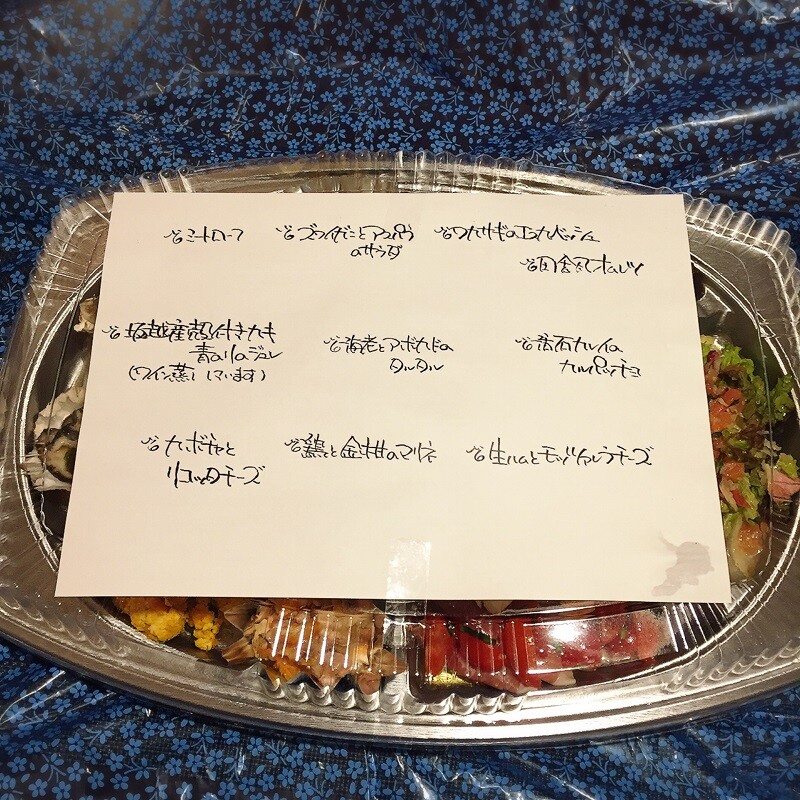 ミートローフ
ズワイガニとアスパラ
のサラダ
ワカサギのエスカベッシュ
田舎風オムレツ
坂越産殻付きカキ
青のりのジュレ
(ワイン蒸ししています)
海老とアボカドの
タルタル
明石カレイの
カルパッチョ
カボチャと
リコッタチーズ
鶏と金柑のマリネ
生ハムとモッツァレラチーズ